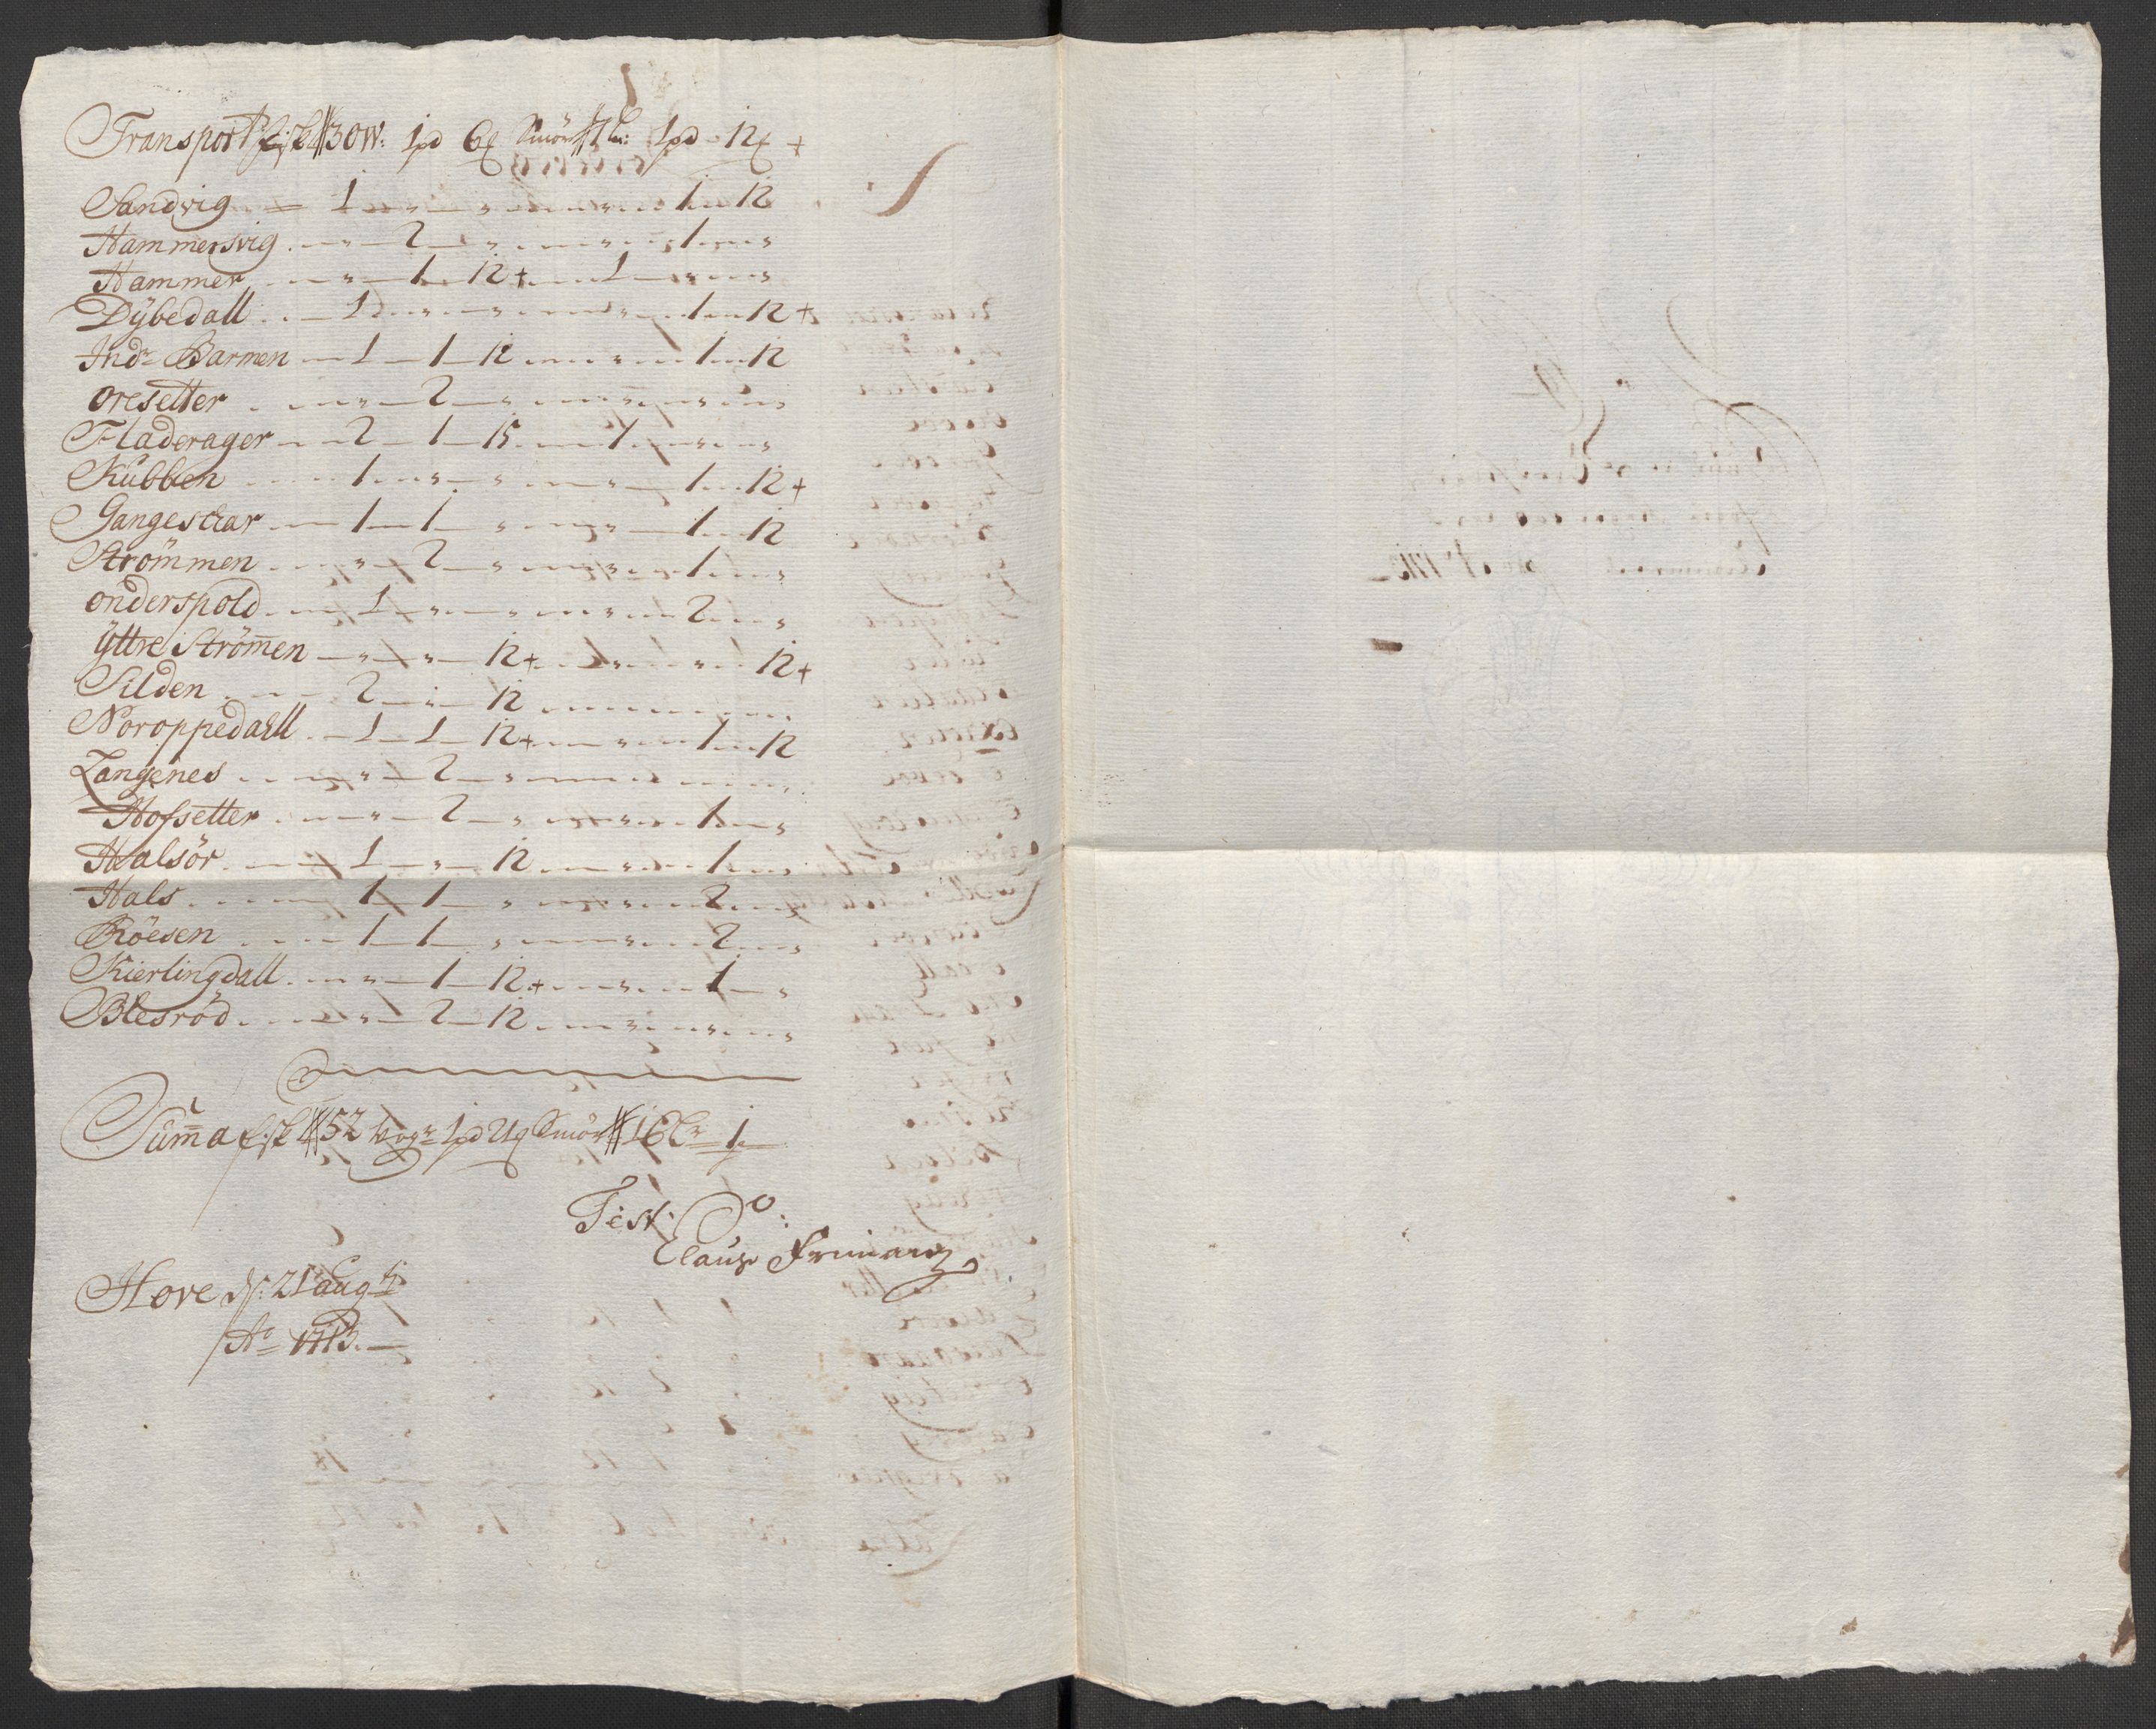 Transport fisk 30 W: 1 pd 6 Smör 1 pd - 12 +
Sandvig 1 " " " 1 12
Hammersvig " 2 " " 1 "
Hammer " 1 12+ 1 " "
Dÿbedall 1 " " " 1 12+
Indr Barmen 1 1 12 " 1 12
oresetter " 2 " " " "
Fladerager 2 1 15 1 " "
Kubben 1 " " " 1 12+
Gangeskar 1 1 " " 1 12
Strömmen " 2 " " 1 "
onderspold 1 " " " 2 "
ÿttre Strömen " " 12+ " " 12+
Silden 2 " 12
Noroppedall 1 1 12+ " 1 12
Langenes " 2 "
Hofsetter " 2 " " 1 "
Halsör 1 " 12 " 1 "
Hals 1 1 " " 2 "
Röesen 1 1 " " 2 "
Kierlingdall " 1 12+ " 1 "
Blesröd " 2 12 " " "
Suma fisk 52 wogr 1 pd Smör 16 1
Test:
Clausr
Hove d: 21 augti
Ao 1713.